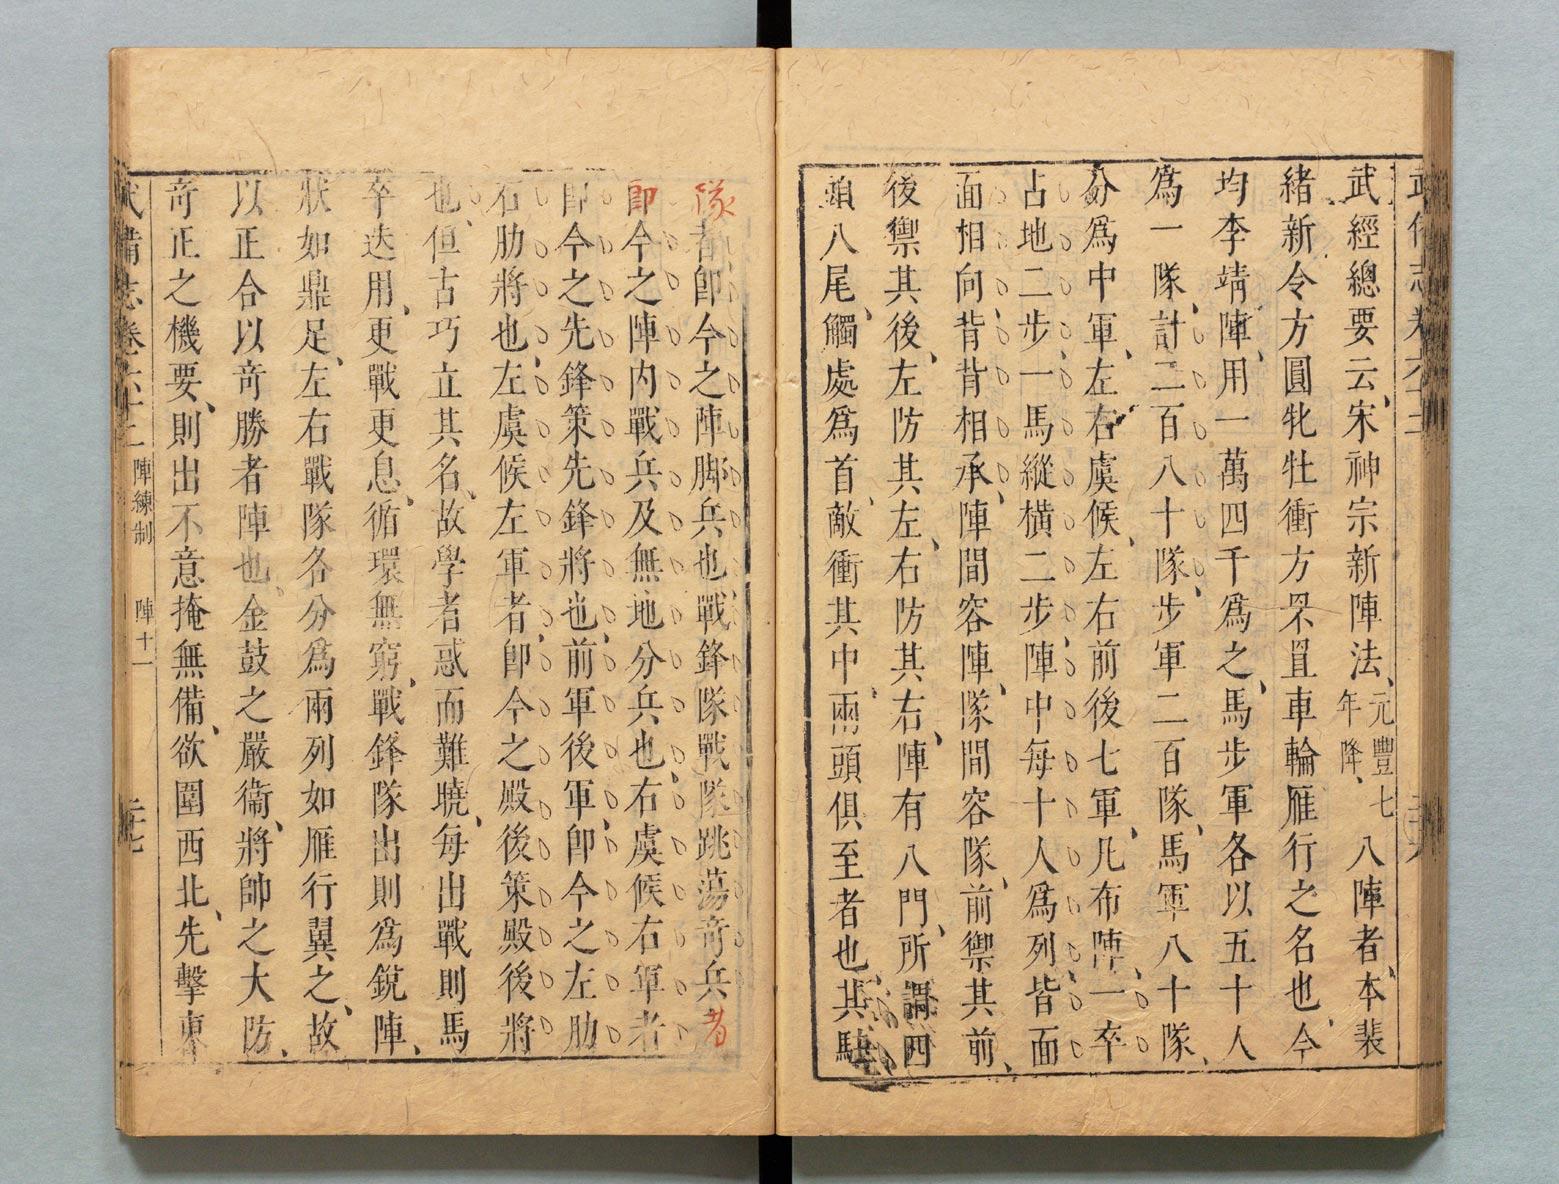 武經總要云宋神宗新陣法元豐七年降八陣者本裴
緒新令方圓牝牡衝方罘罝車輪雁行之名也今
均李靖陣用一萬四千爲之馬步軍各以五十人
爲一隊計二百八十隊步軍二百隊馬軍八十隊
分爲中軍左右虞候左右前後七軍凡布陣一卒
占地二步一馬縱橫二步陣中每十人爲列皆面
面相向背背相承陣間容陣隊間容隊前禦其前
後禦其後左防其左右防其右陣有八門所謂四
頭八尾觸處爲首敵衝其中兩頭俱至者也其駐
隊者卽今之陣脚兵也戰鋒隊戰隊跳蕩奇兵者
卽今之陣內戰兵及無地分兵也右虞候右軍者
卽今之先鋒策先鋒將也前軍後軍卽今之左肋
右肋將也左虞候左軍者卽今之殿後策殿後將
也但古巧立其名故學者惑而難曉每出戰則馬
卒迭用更戰更息循環無窮戰鋒隊出則爲銳陣
狀如鼎足左右戰隊各分爲兩列如雁行翼之故
以正合以奇勝者陣也金鼓之嚴衞將帥之大防
奇正之機要則出不意掩無備欲圍西北先擊東
武備志卷六十二 陣練制 陣十一 二十七